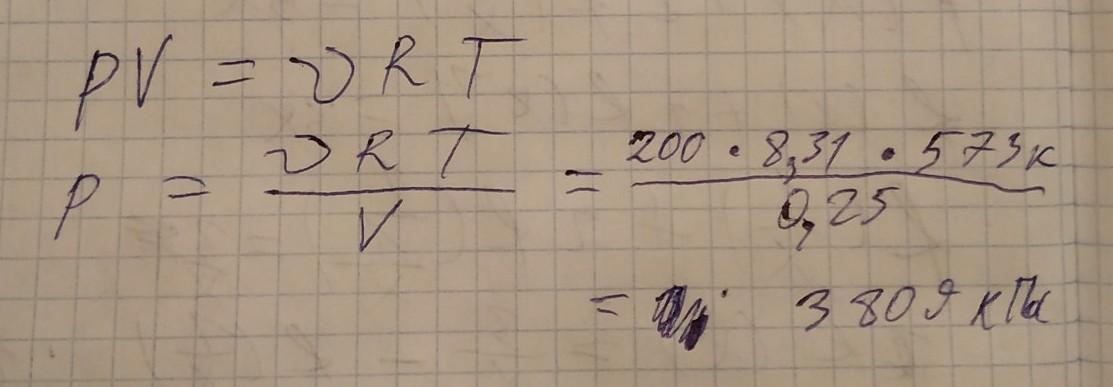 pV = νRT
p = νRT / V = 200 · 8,31 · 573к / 0,25
= 3809 кПа